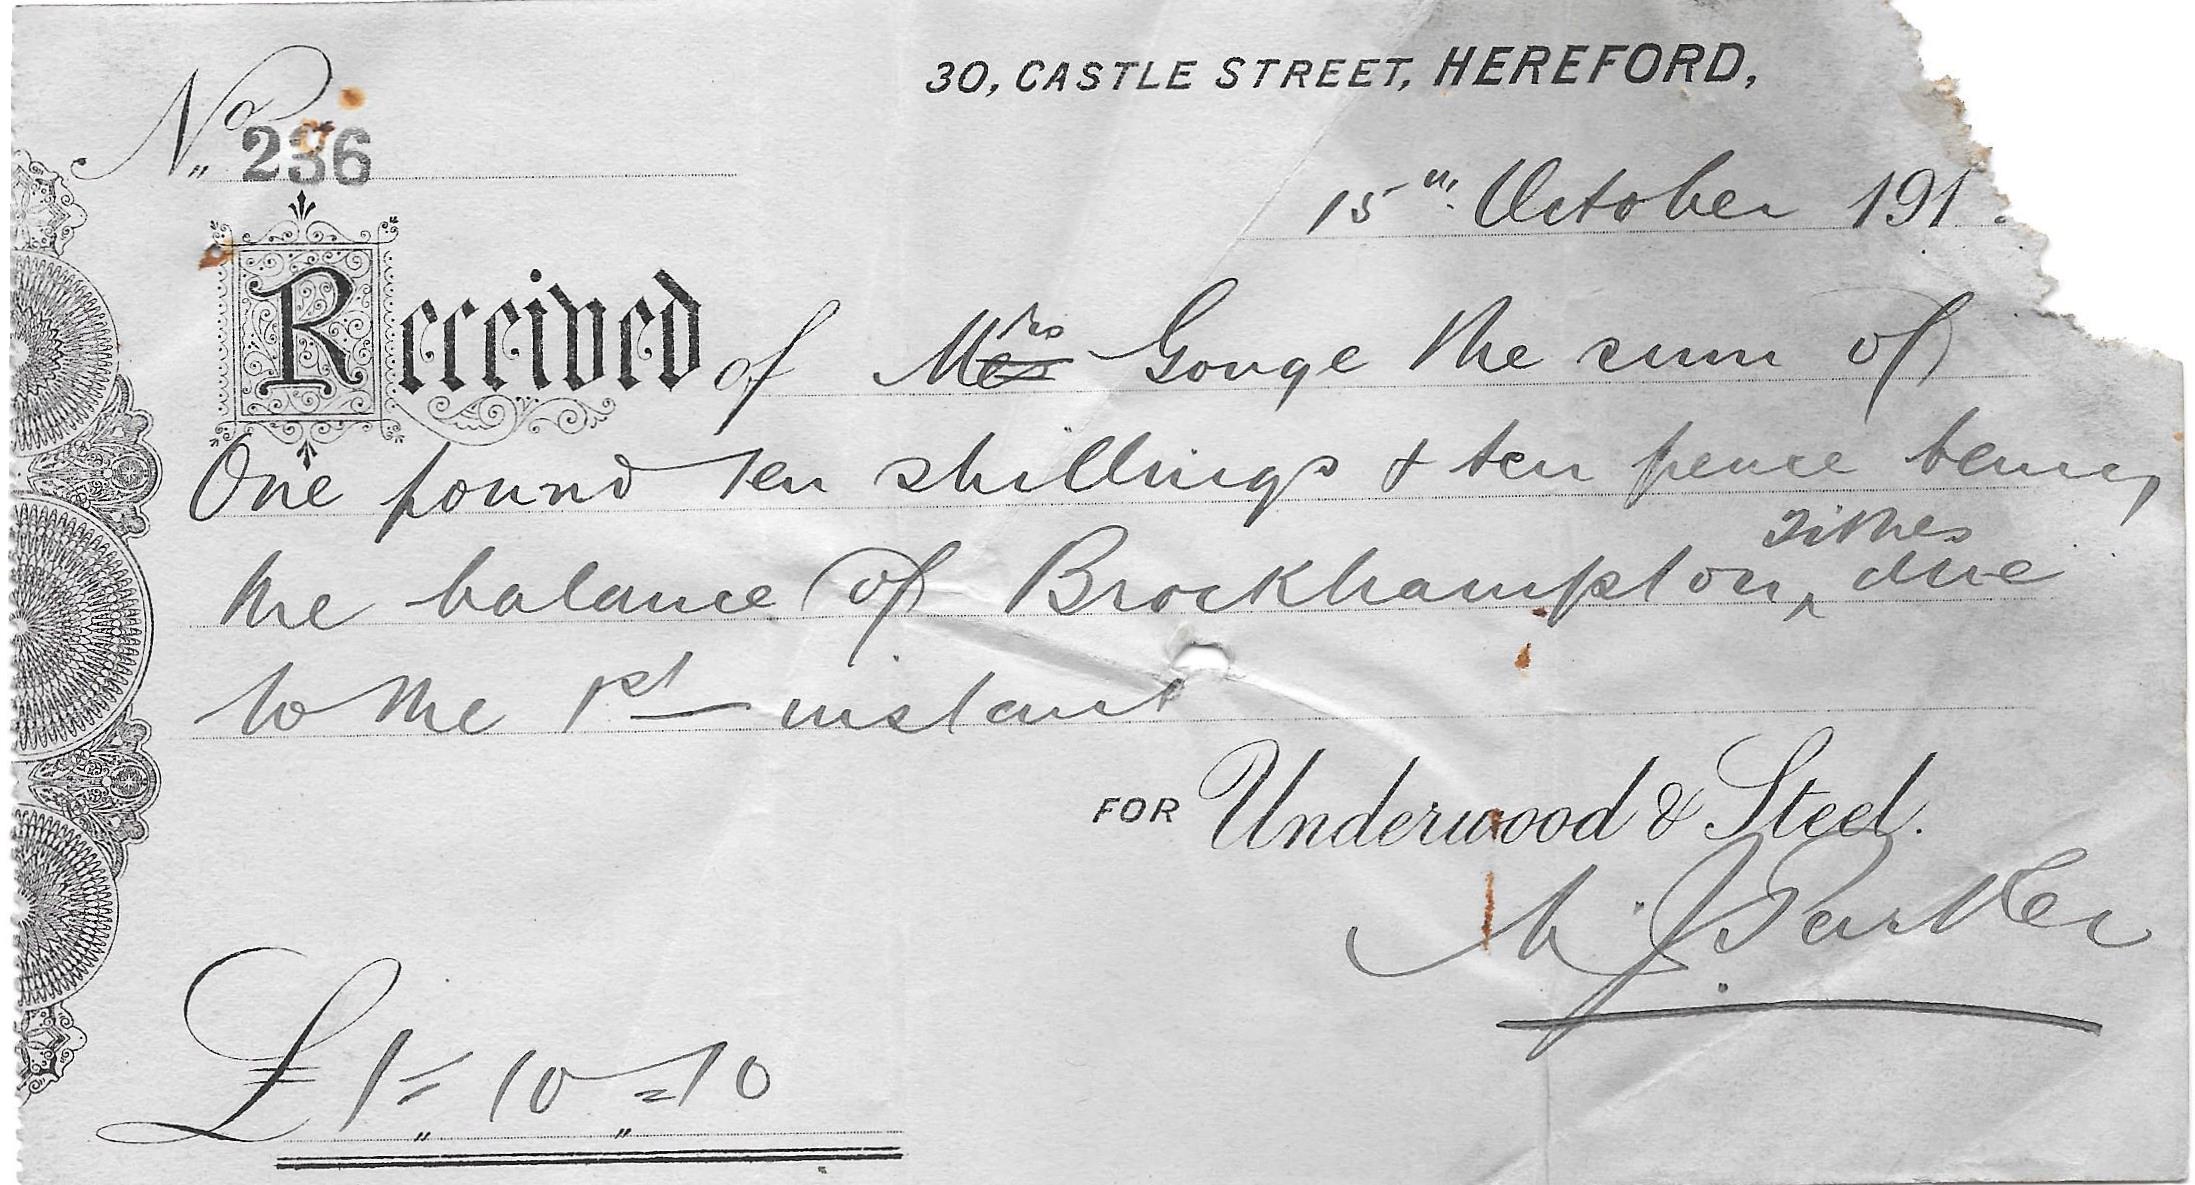 30, CASTLE STREET, HEREFORD,
No 236
15th October 191
Received of Mrs Gouge the sum of
One pound ten shillings & ten pence being
the balance of Brockhampton Tithes due
to the 1st instant
FOR Underwood & Steel.
J Parker
£ 1 = 10 = 10